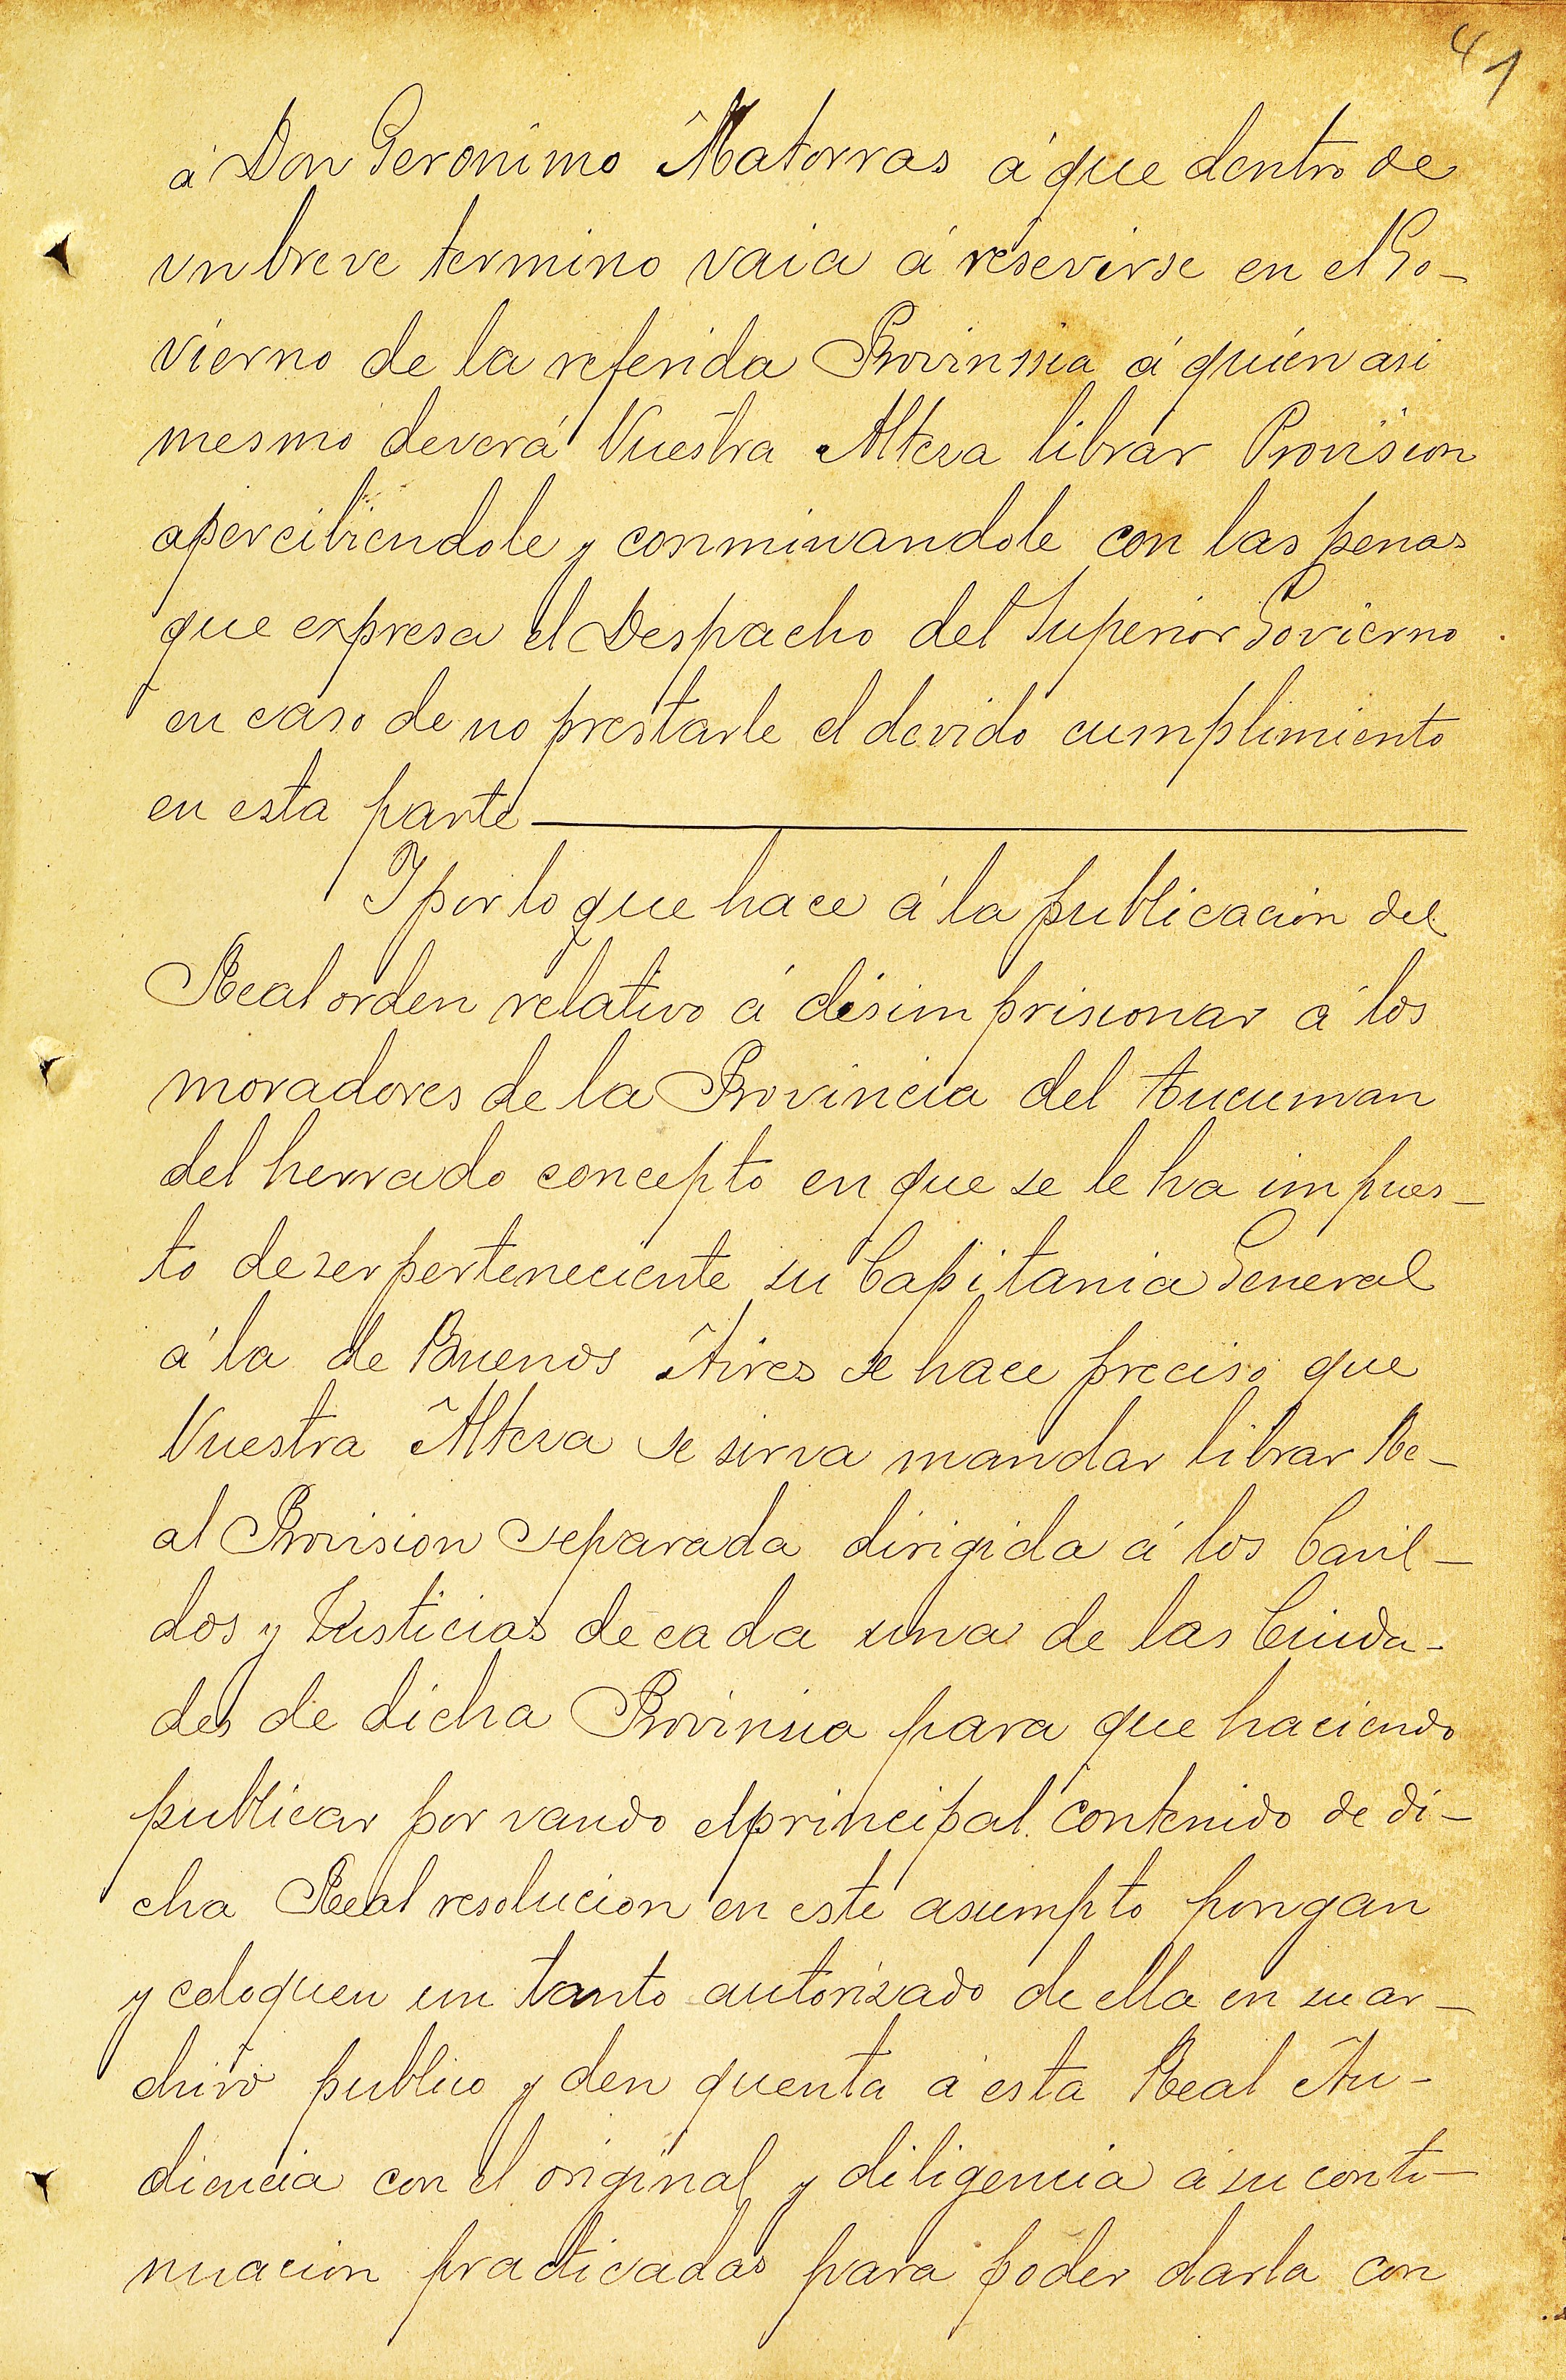 41
á Don Geronimo Matorras á que dentro de
un breve termino vaia á resevirse en el Go-
vierno de la referida Provinssia á quien asi
mesmo deverá Vuestra Alteza librar Provision
aperciviendole y conminandole con las penas
que expresa el Despacho del Superior Govierno
en caso de no prestarle el devido cumplimiento
en esta parte
I por lo que hace á la publicacion del
Real orden relativo á desimprisionar á los
moradores de la Provincia del tucuman
del herrado concepto en que se le ha impues-
to de ser perteneciente su Capitania General
á la de Buenos Aires se hace preciso que
Vuestra Alteza se sirva mandar librar Re-
al Provision separada dirigida á los Cavil-
dos y Justicias de cada una de las Ciuda-
des de dicha Provinsia para que haciendo
publicar por vando el principal contenido de di-
cha Real resolucion en este asumpto pongan
y coloquen un tanto autorizado de ella en su ar-
chivo publico y den quenta á esta Real Au-
diencia con el original y diligencia á su conti-
nuacion practicadas para poder darla con